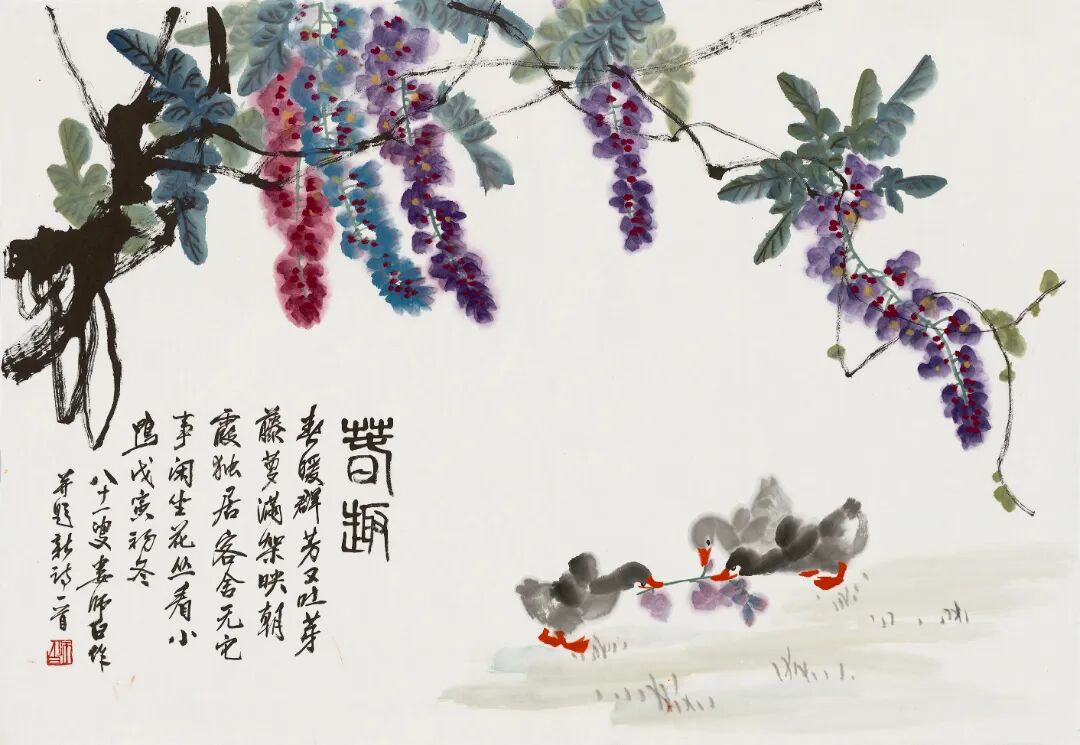 春趣
春暖群芳又吐芽
藤萝满架映朝
霞独居客舍无它
事闲坐花丛看小
鸭戊寅初冬
八十一叟娄师白作
并题新诗一首